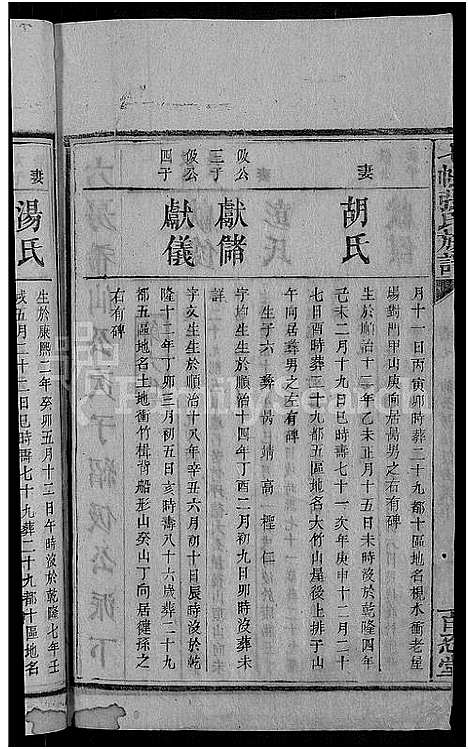 張氏族譜
月十一日丙寅卯時葬二十九都十區地名楒水衝老屋
場對門甲山庚向居勗男之右有碑
妻
胡氏
生於順治十二年乙未正月十五日未時沒於乾隆四年
己未二月十九日巳時壽八十一次年庚申十二月二十
七日酉時葬二十九都五區地名大竹山屋後上排子山
午向居彝男之左有碑
生子六 彝 勗 靖 高 權 仁
伋公
三子
獻儲
字均生生於順治十四年丁酉二月初九日卯時沒葬未
詳
伋公
四子
獻儀
字文生生於順治十八年辛丑六月初十日辰時沒於乾
隆十二年丁卯三月初五日亥時壽八十六歲葬二十九
都五區地名土地衝竹楫背船形山癸山丁向居健孫之
右有碑
妻
湯氏
生於康熙二年癸卯五月十三日午時沒於乾隆七年壬
戌五月二十二日巳時壽七十九葬二十九都十區地名
百忍堂